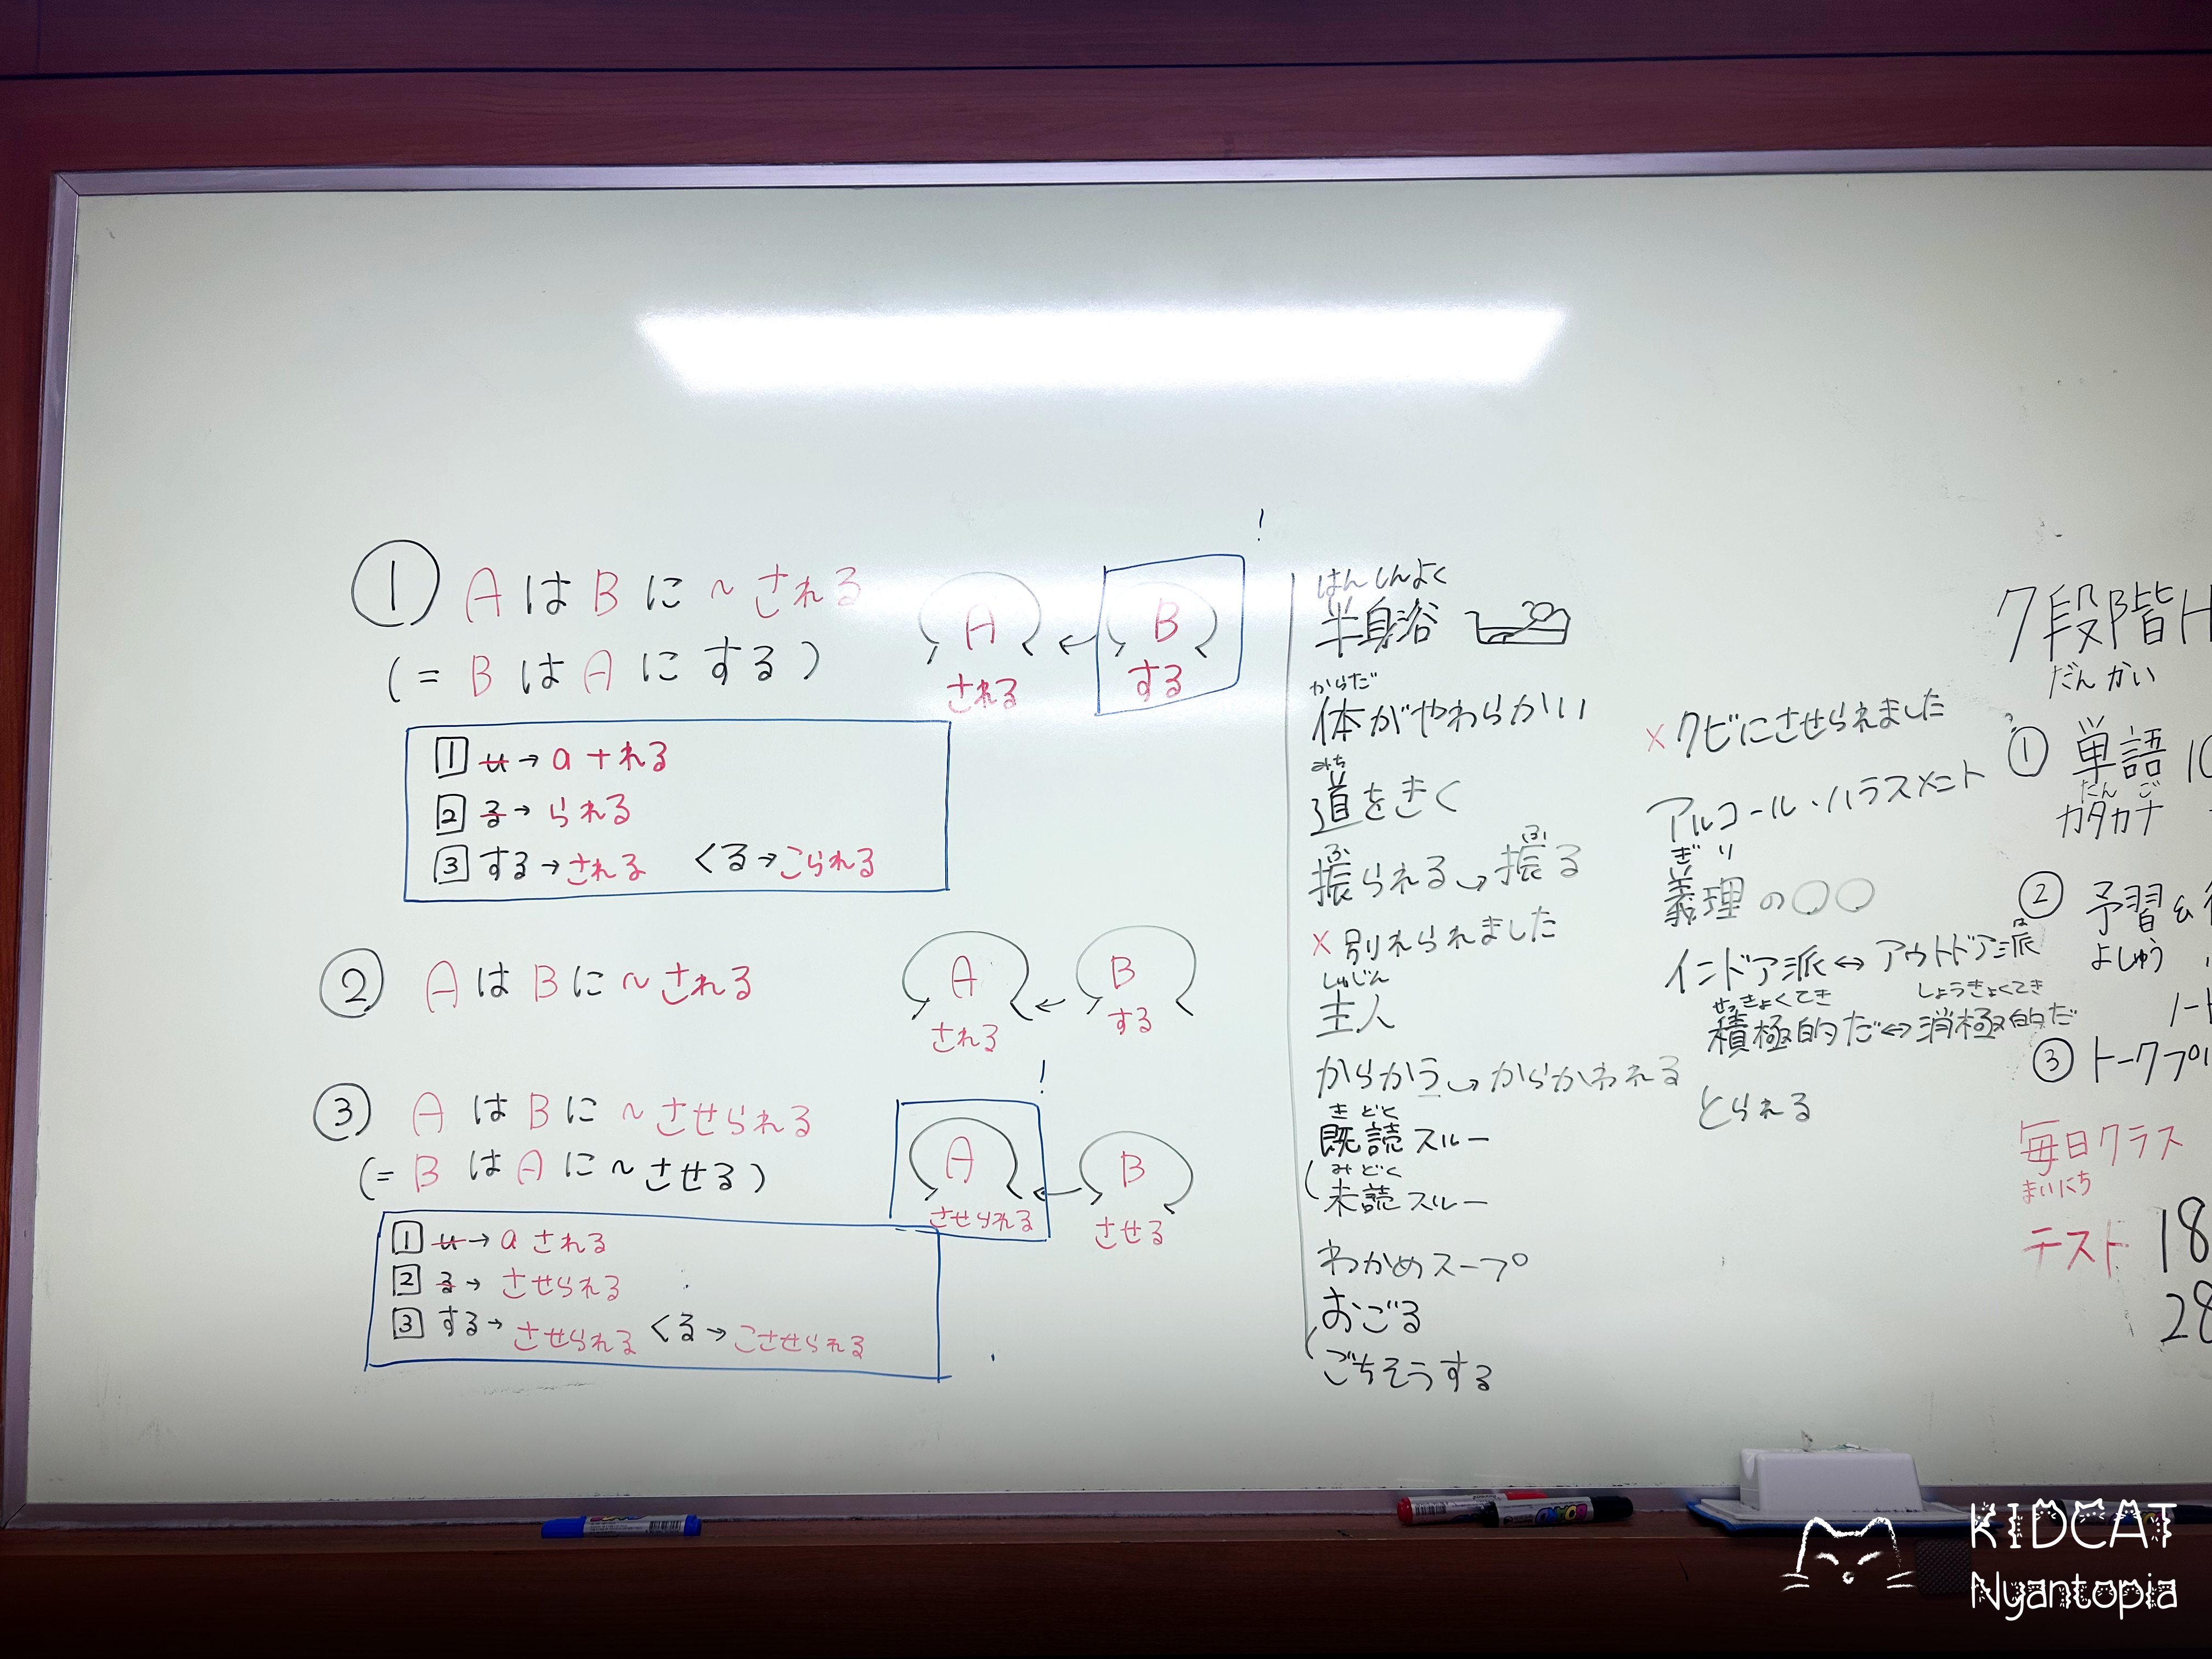 ① AはBに～される
(= BはAにする)
A ← B !
される する
1 u→a+れる
2 る→られる
3 する→される くる→こられる
② AはBに～される
A ← B
される する
③ AはBに～させられる
(= BはAに～させる)
! A ← B
させられる させる
1 u→aされる
2 る→させられる
3 する→させられる くる→こさせられる
はんしんよく
半身浴
からだ
体がやわらかい
みち
道をきく
ふ ふ
振られる→振る
×別れられました
しゅじん
主人
からかう→からかわれる
き どく
既読スルー
み どく
未読スルー
わかめスープ
おごる
ごちそうする
×クビにさせられました
アルコール・ハラスメント
ぎ り
義理の〇〇
は
インドア派↔アウトドア派
せっきょくてき しょうきょくてき
積極的だ↔消極的だ
とられる
7段階
だんかい
① 単語
たん ご
カタカナ
② 予習&
よしゅう
③ トークプリ
毎日クラス
まいにち
テスト 18
28
KIDCAT
Nyantopia